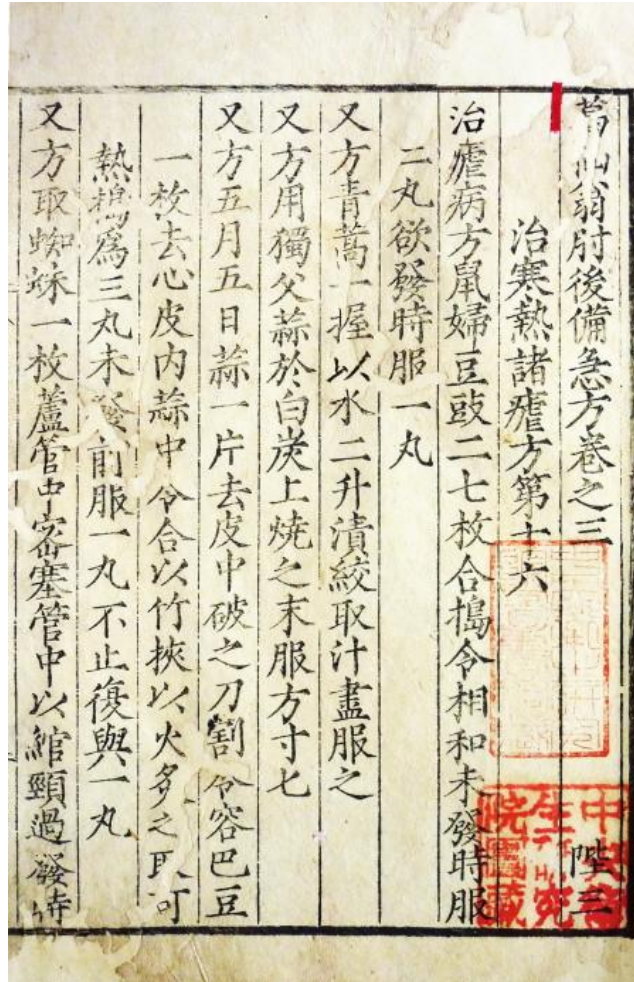 葛仙翁肘後備急方卷之三
陛三
治寒熱諸瘧方第十六
治瘧病方鼠婦豆豉二七枚合搗令相和未發時服
二丸欲發時服一丸
又方青蒿一握以水二升漬絞取汁盡服之
又方用獨父蒜於白炭上燒之末服方寸匕
又方五月五日蒜一片去皮中破之刀割令容巴豆
一枚去心皮內蒜中令合以竹挾以火炙之取可
熱搗爲三丸未發前服一丸不止復與一丸
又方取蜘蛛一枚蘆管中密塞管中以綰頸過發時